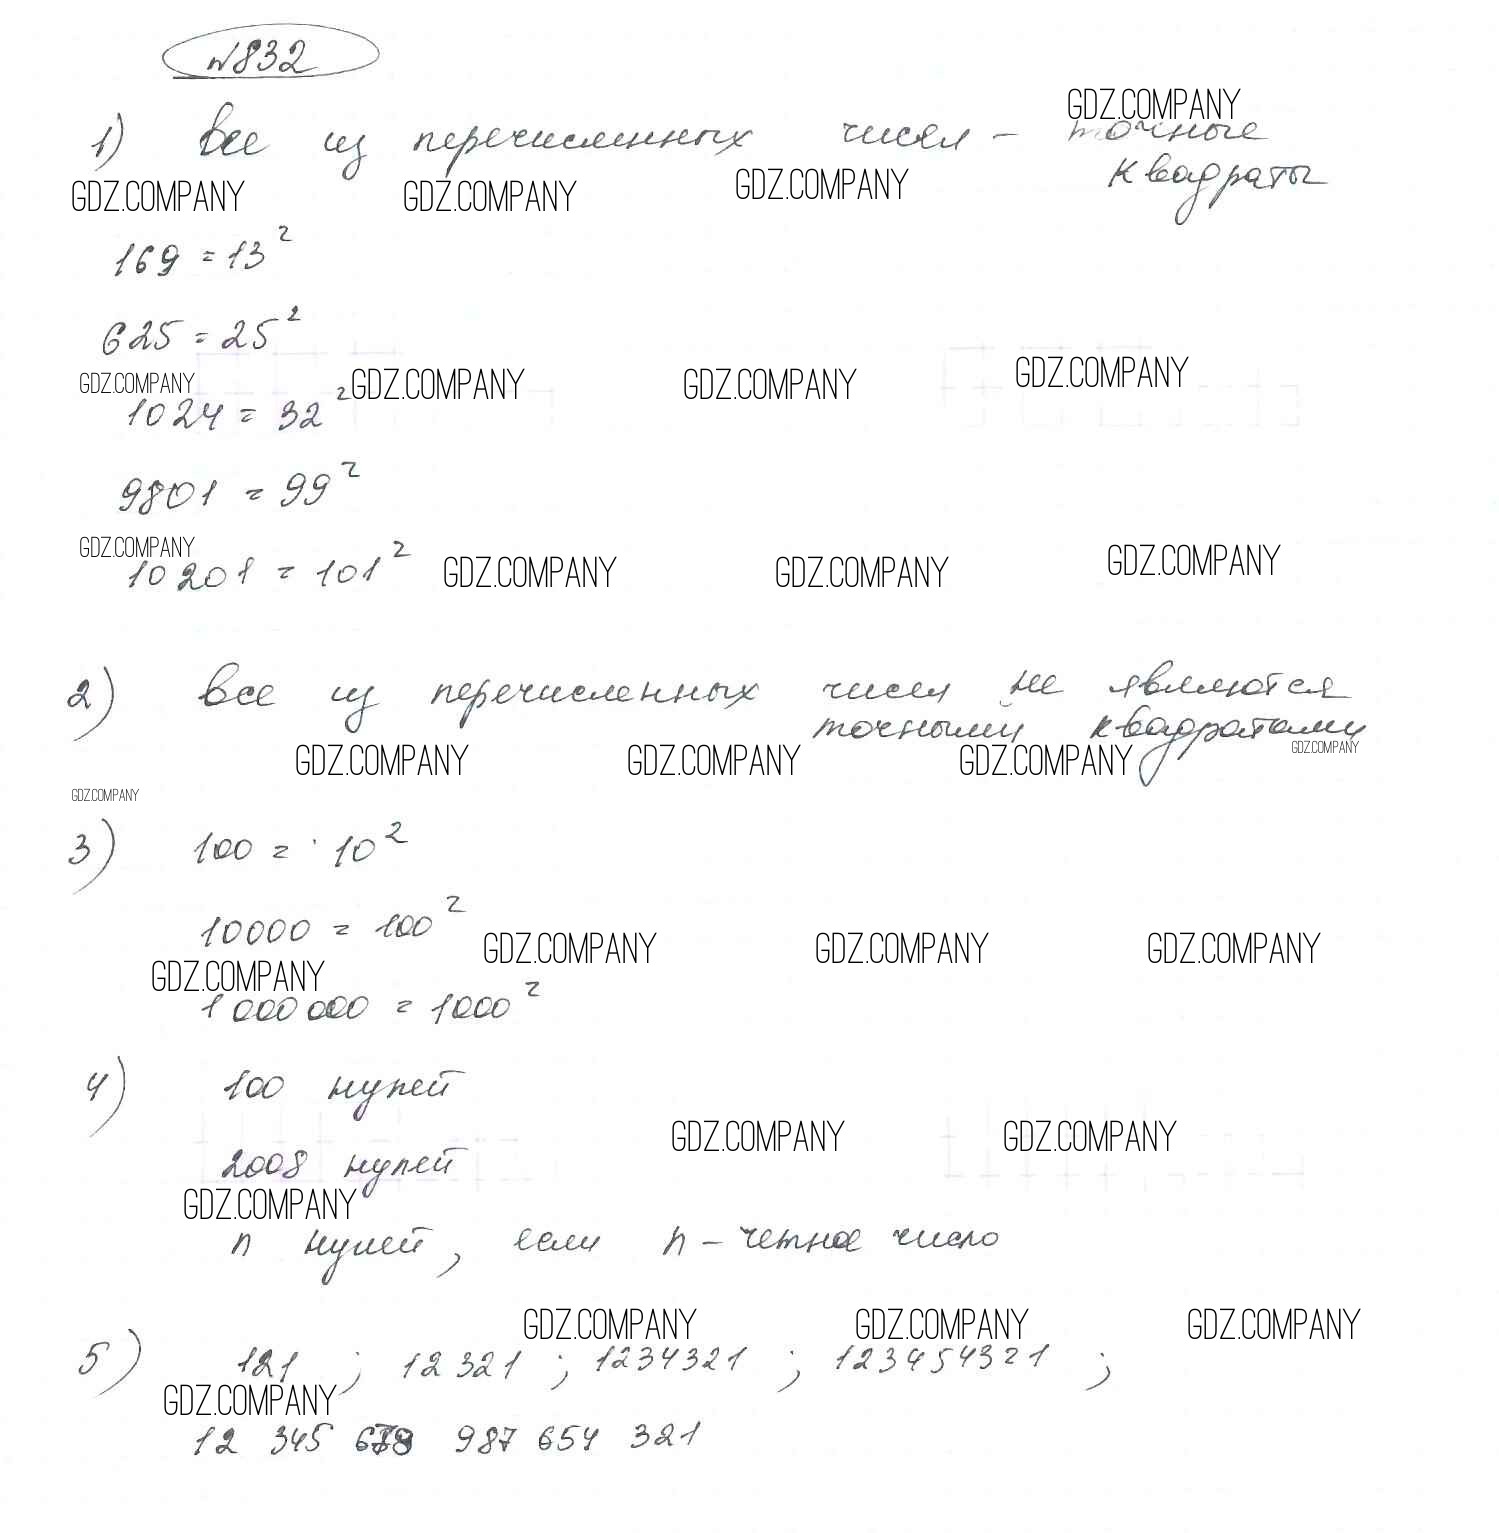 №832
GDZ.COMPANY
1) все из перечисленных чисел – точные
квадраты
GDZ.COMPANY GDZ.COMPANY GDZ.COMPANY
169 = 13²
625 = 25²
GDZ.COMPANY GDZ.COMPANY GDZ.COMPANY GDZ.COMPANY
1024 = 32²
9801 = 99²
GDZ.COMPANY GDZ.COMPANY GDZ.COMPANY GDZ.COMPANY
10201 = 101²
2) все из перечисленных чисел не являются
точными квадратами
GDZ.COMPANY GDZ.COMPANY GDZ.COMPANY GDZ.COMPANY
GDZ.COMPANY
3) 100 = 10²
10000 = 100²
GDZ.COMPANY GDZ.COMPANY GDZ.COMPANY GDZ.COMPANY
1 000 000 = 1000²
4) 100 нулей
GDZ.COMPANY GDZ.COMPANY
2008 нулей
GDZ.COMPANY
n нулей, если n – четное число
GDZ.COMPANY GDZ.COMPANY GDZ.COMPANY
5) 121 ; 12 321 ; 1234321 ; 123454321 ;
GDZ.COMPANY
12 345 678 987 654 321